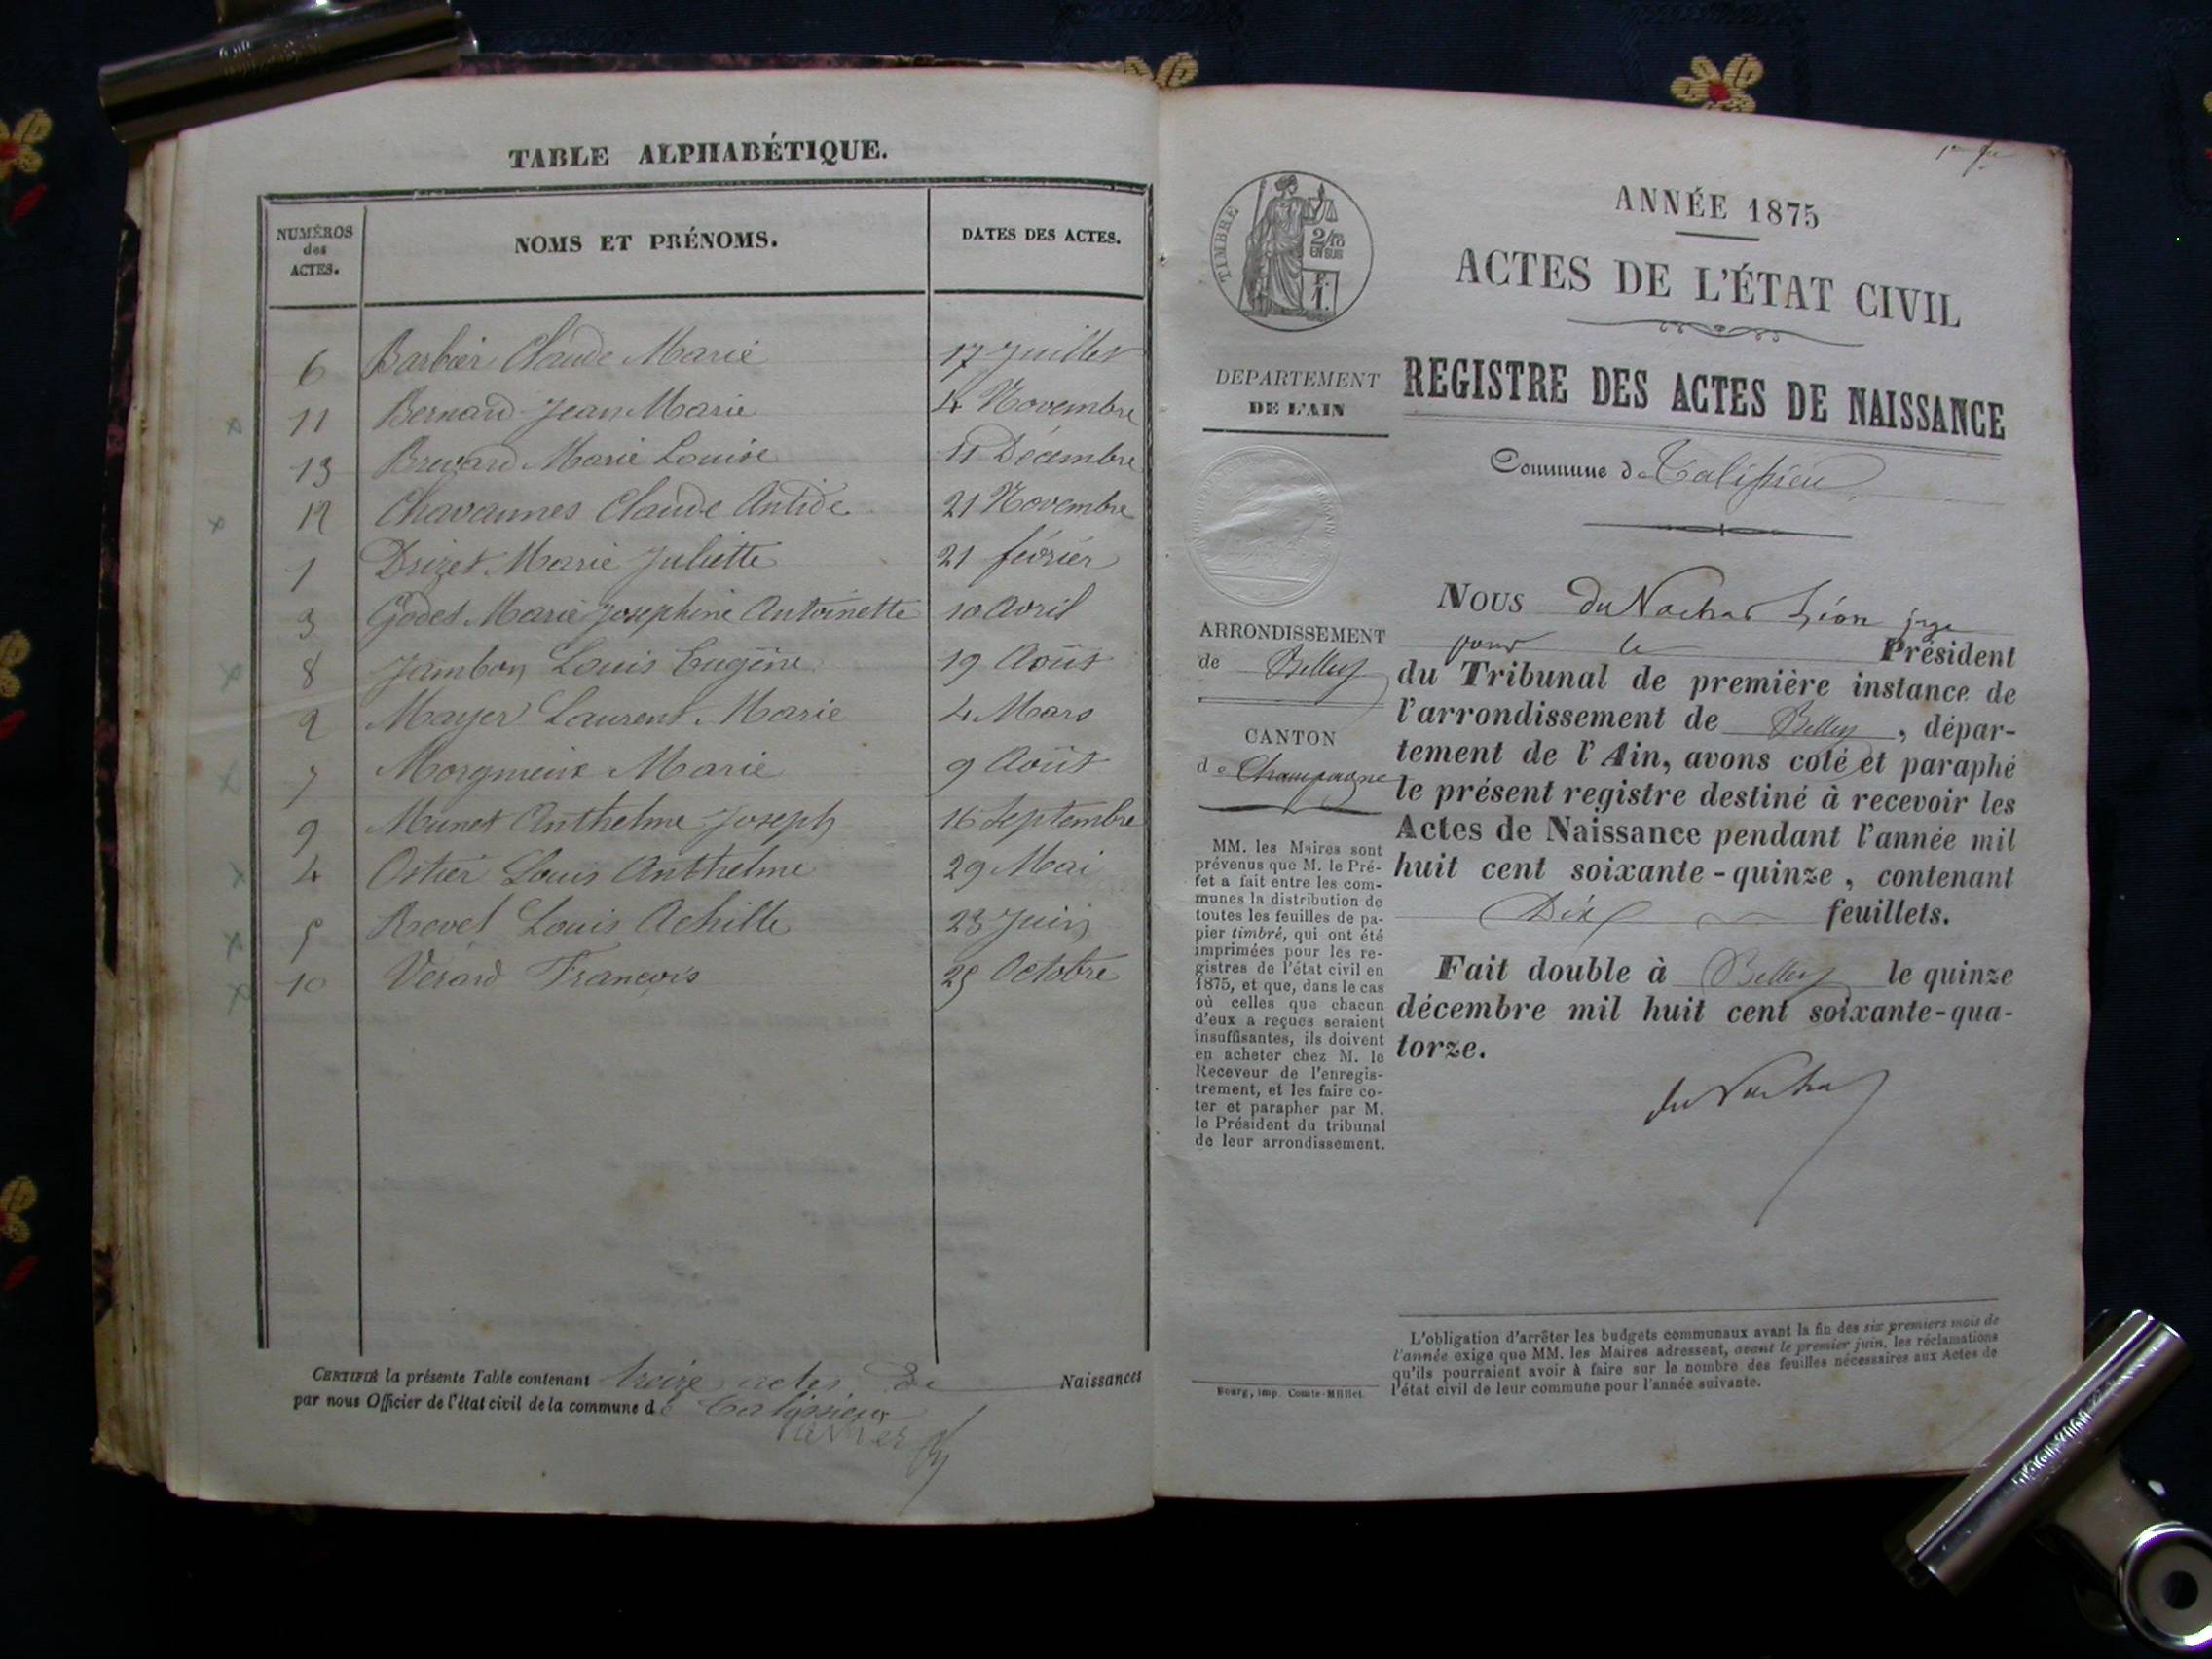 TABLE ALPHABÉTIQUE.
NUMÉROS des ACTES. NOMS ET PRÉNOMS. DATES DES ACTES.
6 Barbier Claude Marie 17 Juillet
11 Bernard Jean Marie 4 Novembre
13 Brevard Marie Louise 11 Décembre
12 Chavannes Claude Antide 21 Novembre
1 Drizet Marie Juliette 21 février
3 Godet Marie Josephine Antoinette 10 Avril
8 Jambon Louis Eugène 19 Août
2 Mayer Laurent Marie 4 Mars
7 Morgnieux Marie 9 Août
9 Munet Anthelme Joseph 16 Septembre
4 Ostier Louis Anthelme 29 Mai
5 Revel Louis Achille 23 Juin
10 Verard François 25 Octobre
CERTIFIÉ la présente Table contenant treize actes de Naissances
par nous Officier de l'état civil de la commune de Talissieu
TIMBRE
2/10
EN SUS
F.
1.
DEPARTEMENT
DE L'AIN
ARRONDISSEMENT
de Belley
CANTON
de Champagne
MM. les Maires sont
prévenus que M. le Pré-
fet a fait entre les com-
munes la distribution de
toutes les feuilles de pa-
pier timbré, qui ont été
imprimées pour les re-
gistres de l'état civil en
1875, et que, dans le cas
où celles que chacun
d'eux a reçues seraient
insuffisantes, ils doivent
en acheter chez M. le
Receveur de l'enregis-
trement, et les faire co-
ter et parapher par M.
le Président du tribunal
de leur arrondissement.
Bourg, imp. Comte-Milliet.
ANNÉE 1875
ACTES DE L'ÉTAT CIVIL
REGISTRE DES ACTES DE NAISSANCE
Commune de Talissieu
NOUS du Nachat Léon juge
pour le Président
du Tribunal de première instance de
l'arrondissement de Belley, dépar-
tement de l'Ain, avons coté et paraphé
le présent registre destiné à recevoir les
Actes de Naissance pendant l'année mil
huit cent soixante-quinze, contenant
Dix feuillets.
Fait double à Belley le quinze
décembre mil huit cent soixante-qua-
torze.
du Nachat
L'obligation d'arrêter les budgets communaux avant la fin des six premiers mois de
l'année exige que MM. les Maires adressent, avant le premier juin, les réclamations
qu'ils pourraient avoir à faire sur le nombre des feuilles nécessaires aux Actes de
l'état civil de leur commune pour l'année suivante.